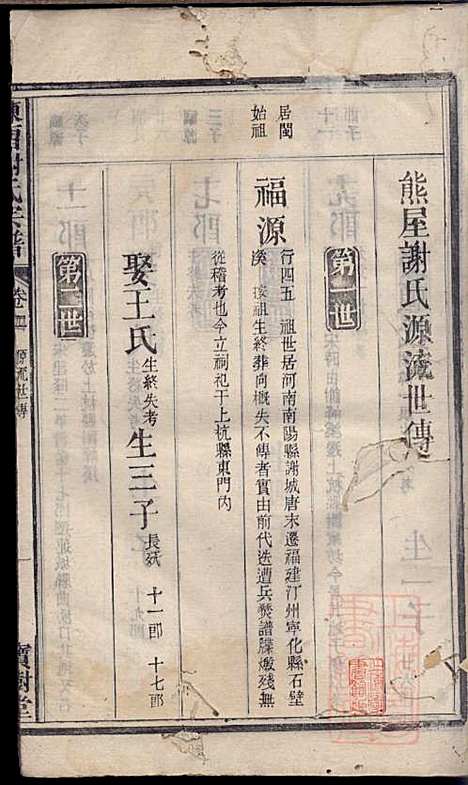 熊屋謝氏源流世傳
第一世
居閩
始祖
福源
行四五 祖世居河南南陽縣謝城唐末遷福建汀州寧化縣石壁
溪 按祖生終葬向概失不傳者實由前代迭遭兵焚譜牒燉殘無
從稽考也今立祠祀于上杭縣東門內
娶王氏生終失考生三子長 十一郎 十七郎
第二世
謝氏宗譜
卷
源流世傳
一
寶樹堂